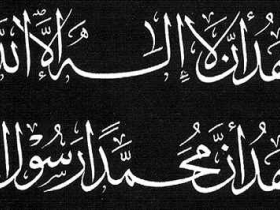 هَدُ أَنْ لَا إِلٰهَ إِلَّا اللّ
هَدُ أَنَّ مُحَمَّدًا رَسُولُ ا